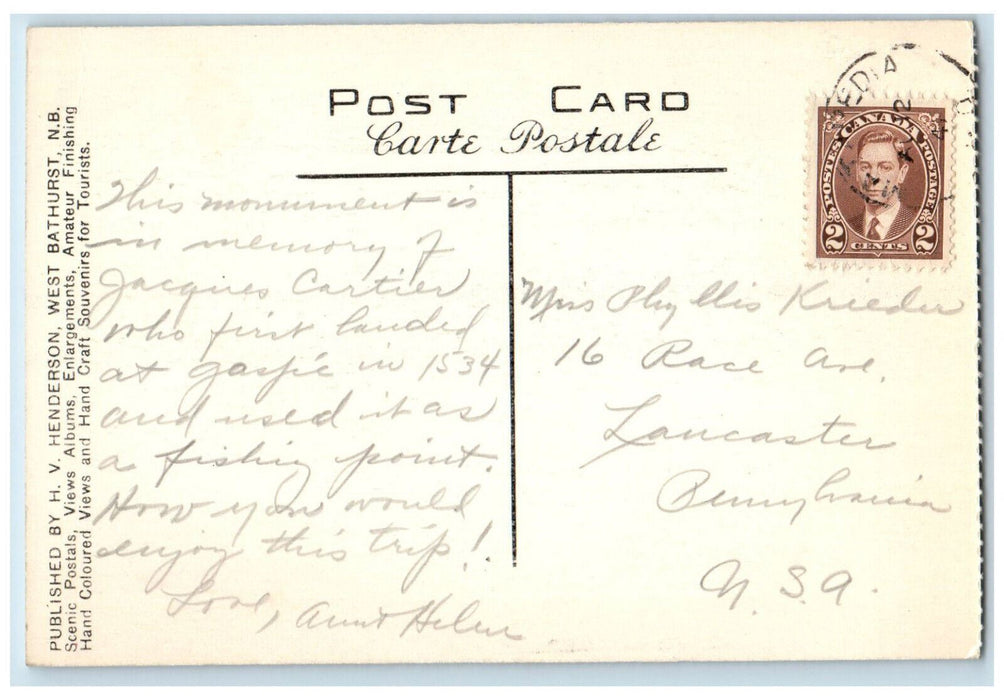 POST CARD
Carte Postale
PUBLISHED BY H. V. HENDERSON, WEST BATHURST, N.B.
Scenic Postals, Views Albums, Enlargements, Amateur Finishing
Hand Coloured Views and Hand Craft Souvenirs for Tourists.
This monument is
in memory of
Jacques Cartier
who first landed
at Gaspé in 1534
and used it as
a fishing point.
How you would
enjoy this trip!
Love, Aunt Helen
POSTES CANADA POSTAGE
2 CENTS 2
Miss Phyllis Krieder
16 Race Ave.
Lancaster
Pennylvania
U.S.A.